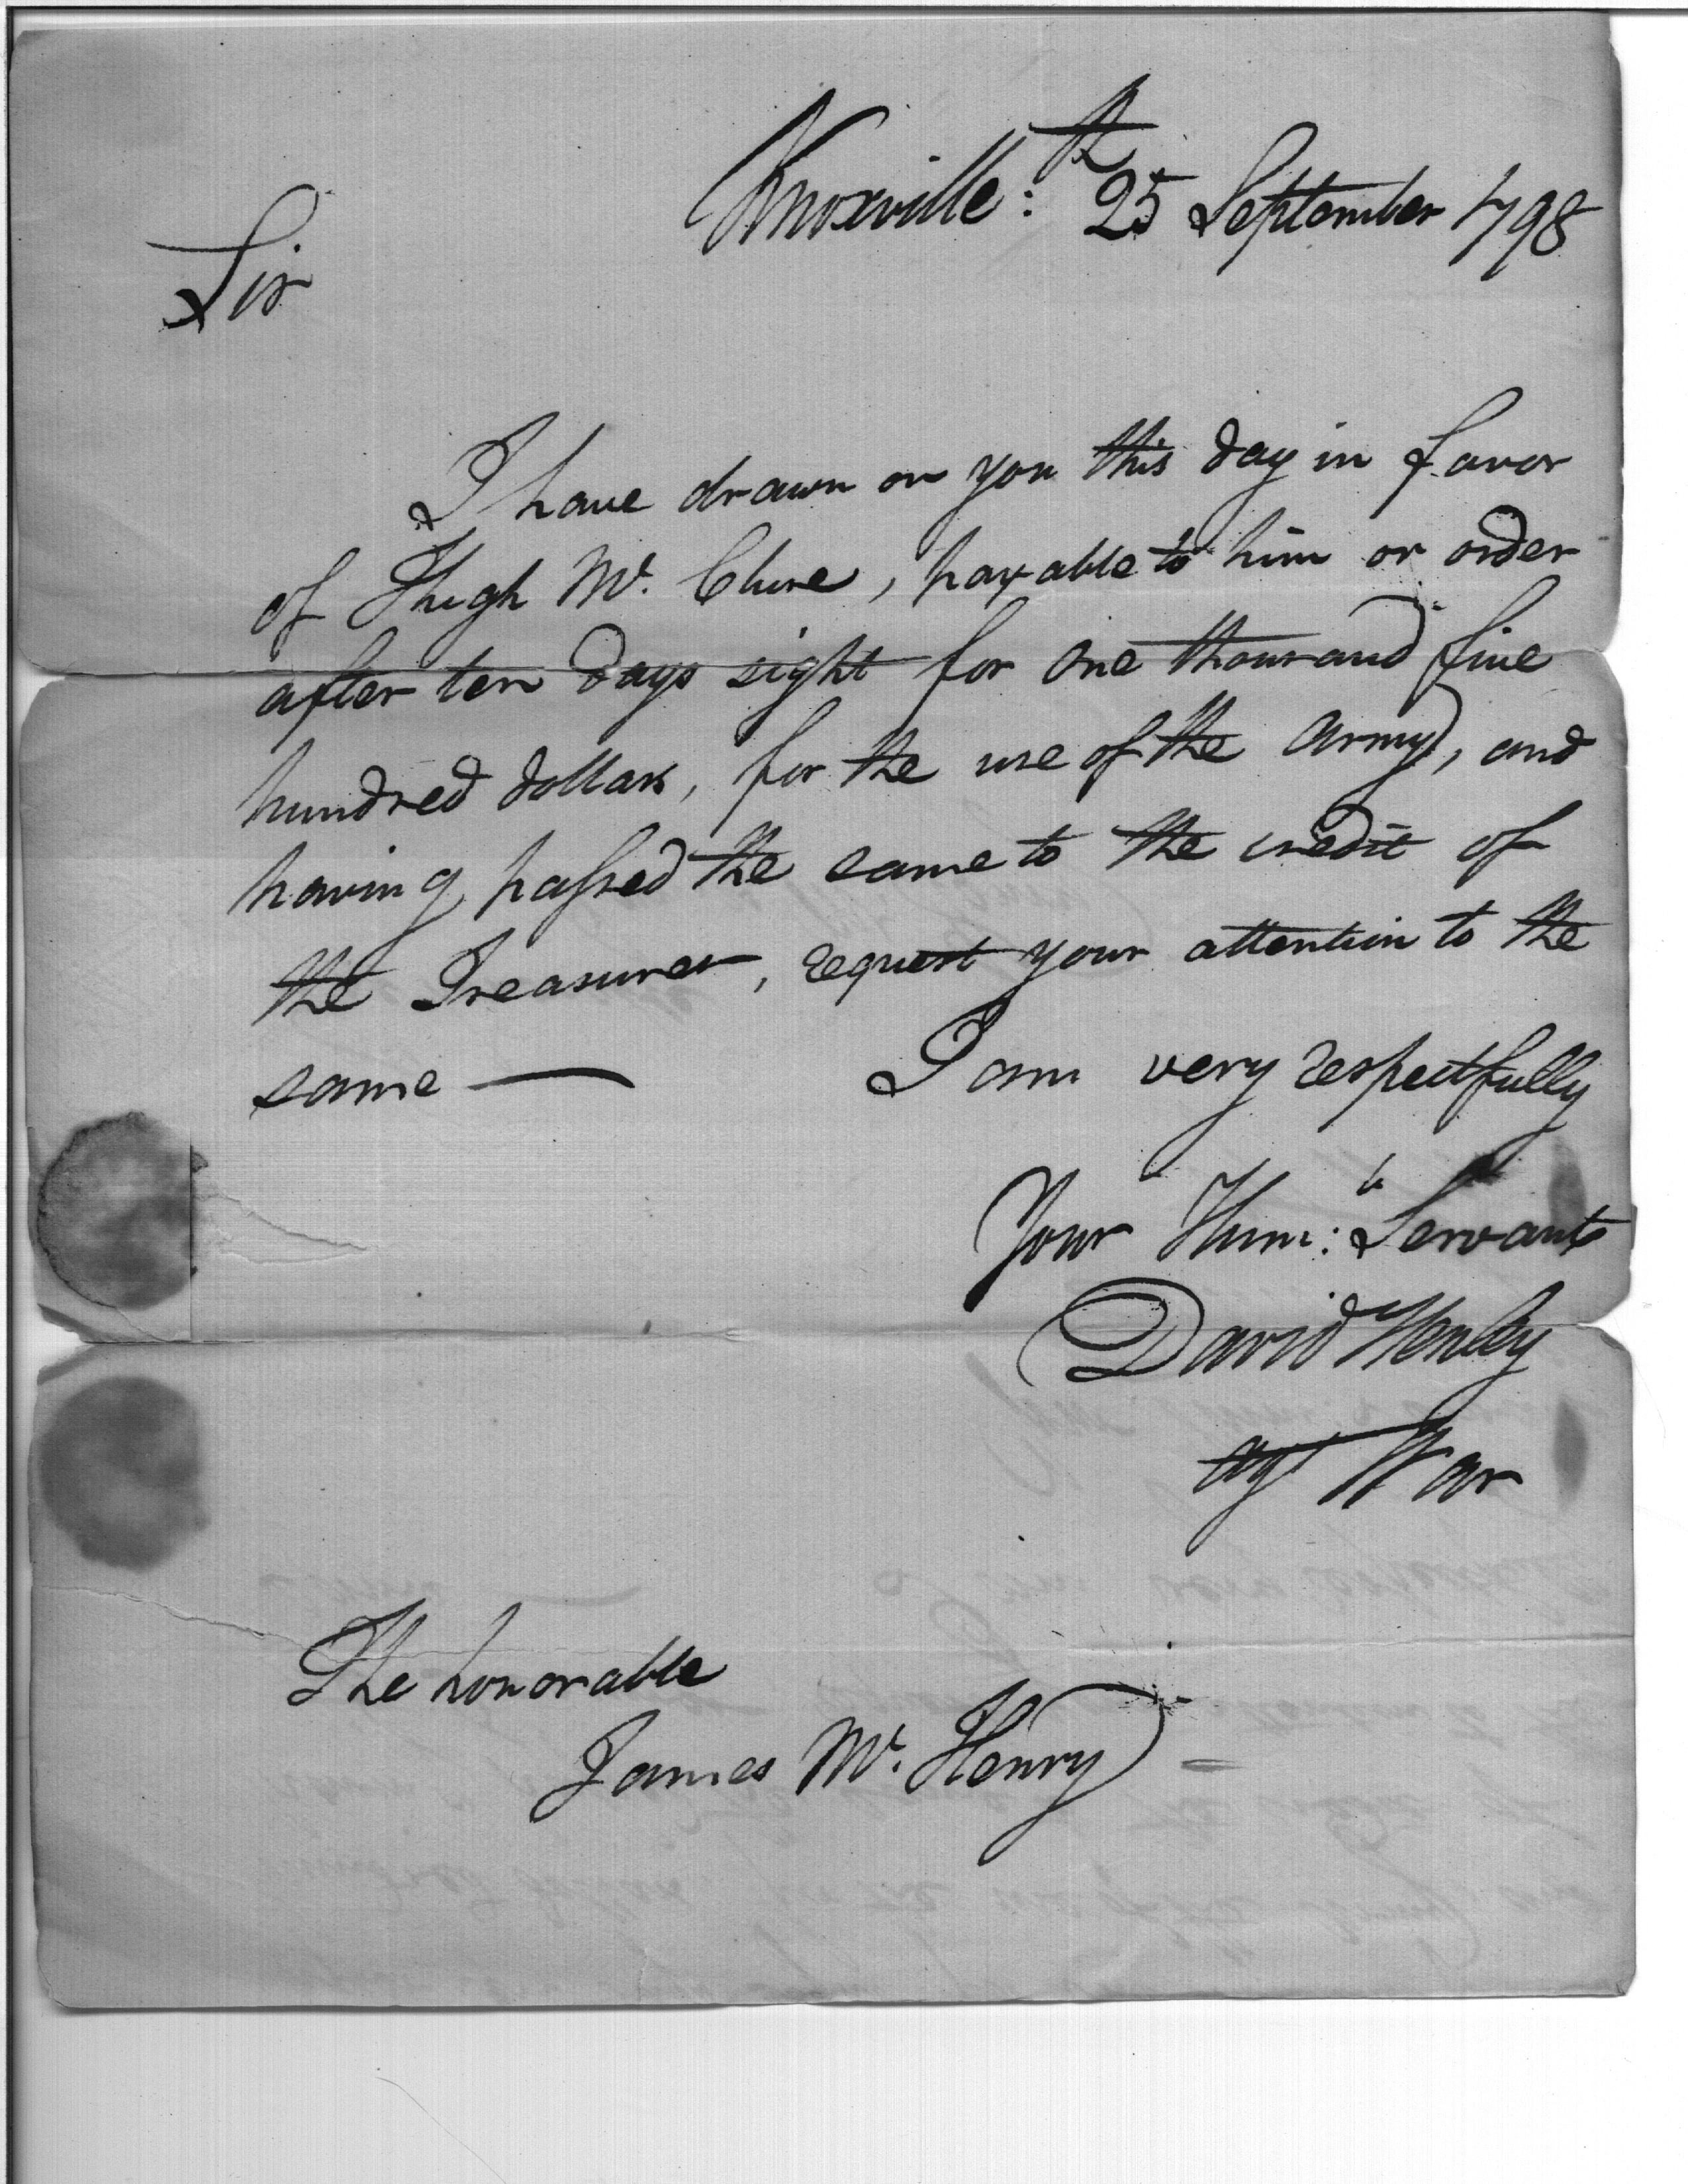 Knoxville: 25th September 1798
Sir
I have drawn on you this day in favor
of Hugh Mc. Clure, payable to him or order
after ten days sight for One thousand five
hundred dollars, for the use of the Army, and
having passed the same to the credit of
the Treasurer, request your attention to the
same —
I am very respectfully
Your Hum: le Servant
David Henley
agt War
The honorable
James Mc. Henry =